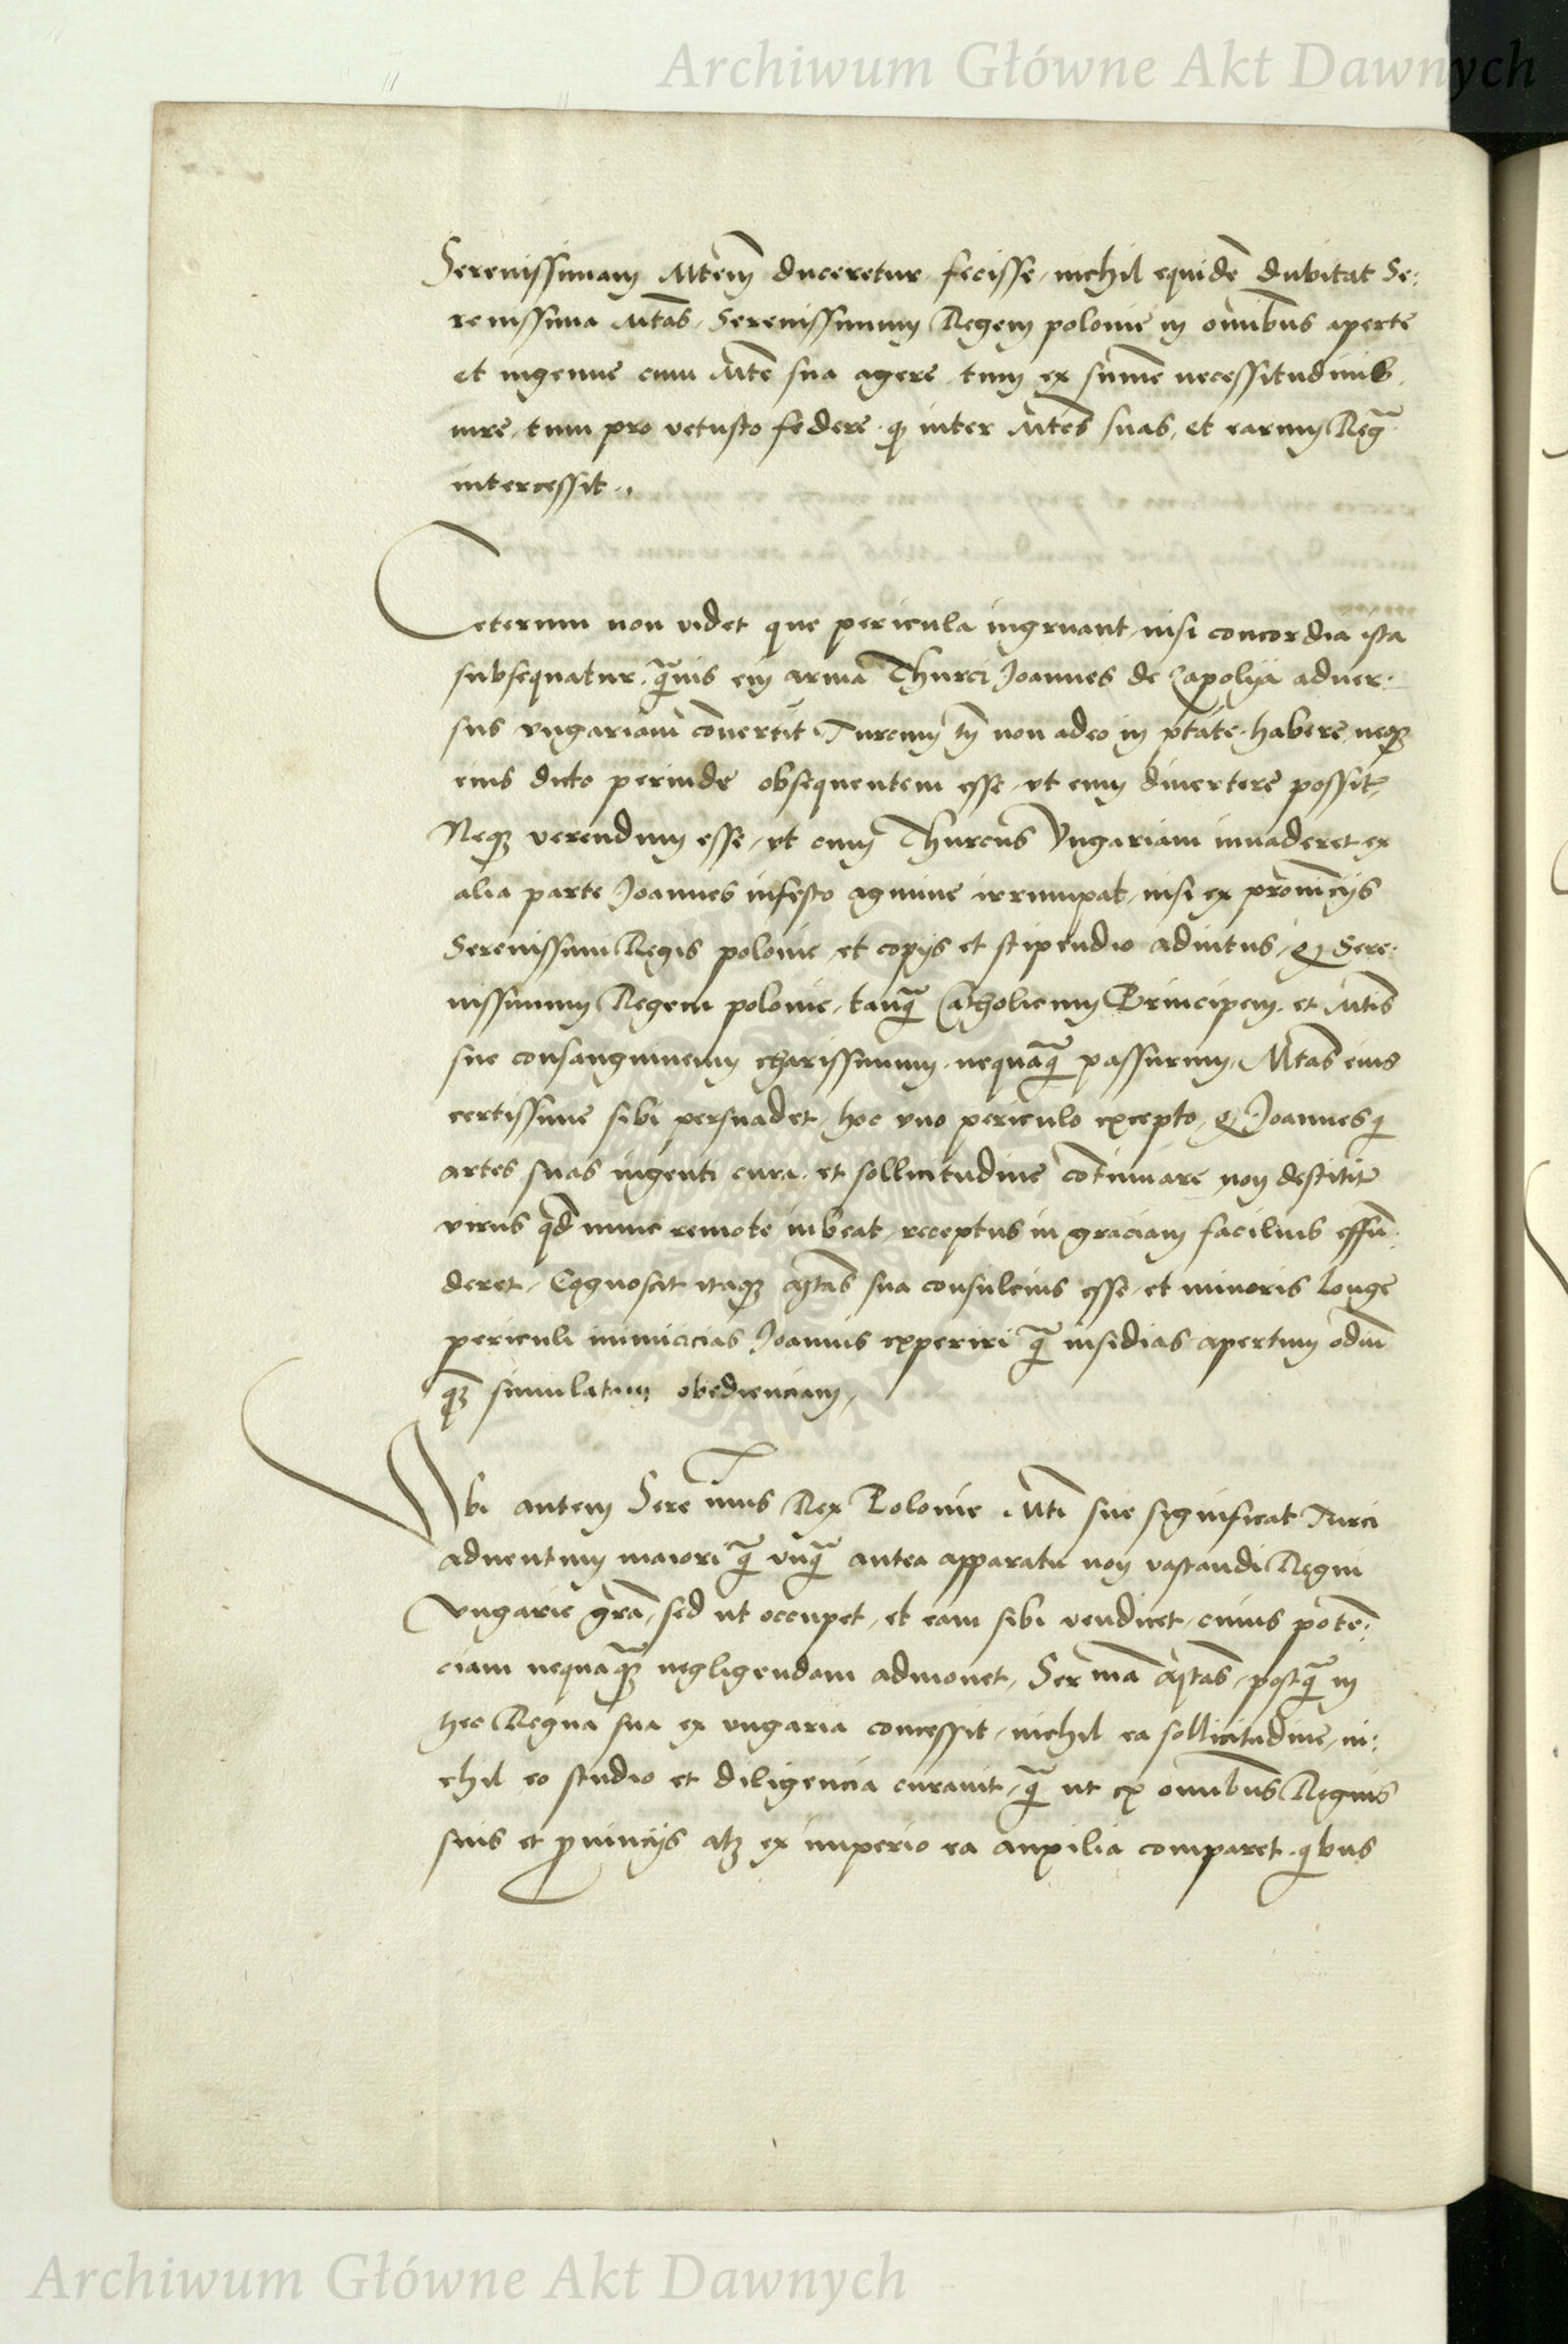 Archiwum Główne Akt Dawnych
Serenissimam Mtem̄ duceretur fecisse, nichil equidē dubitat Se:
renissima Mtas, Serenissimum Regem polonie in oīnibus aperte
et ingenue cum Mte sua agere tum ex summe necessitudinis
iure, tum pro vetusto federe q inter Mtes suas, et earum Regā
intercessit.,
Ceterum non videt que pericula ingruant, nisi concordia ista
subsequatur, q̄uis em arma Thurci Joannes de Zapolya aduer:
sus vngariam cōuertit Turcum tn̄ non adeo in ptāte habere, neqȝ
eius dicto perinde obsequentem esse, vt eum diuertere possit,
Neqȝ verendum esse, vt cum Thurcus Vngariam inuaderet ex
alia parte Joannes infesto agmine irrumpat, nisi ex prouincijs
Serenissimi Regis polonie, et copijs et stipendio adiutus, Q Sere:
nissimum Regem polonie, tanq̄ Catholicum Principem, et Mtis
sue consanguineum charissimum, nequāq̄ passurum, Mtas eius
certissime sibi persuadet, hoc vno periculo excepto, Q Joannes q
artes suas ingenti cura, et sollicitudine cōtinuare non destitit
virus qd nunc remote iubeat, receptus in graciam facilius effū:
deret, Cognoscit itaqȝ Mtas sua consulcius esse, et minoris longe
periculi inimicicias Joannis experiri q̄ insidias apertum odiū
qȝ simulatam obedienciam,
Vbi autem Sere mus Rex Polonie Mti sue significat Turci
aduentum maiori q̄ vnq̄ antea apparatu non vastandi Regni
vngarie grā, sed ut occupet, et eam sibi vendicet, cuius potē:
ciam nequaqȝ negligendam admonet, Ser ma Mtas, postq̄ in
hec Regna sua ex vngaria concessit, nichil ea sollicitudine, ni:
chil eo studio et diligencia curauit, q̄ ut ex omnibus Regnis
suis et prouincijs atȝ ex imperio ea auxilia comparet, qbus
Archiwum Główne Akt Dawnych